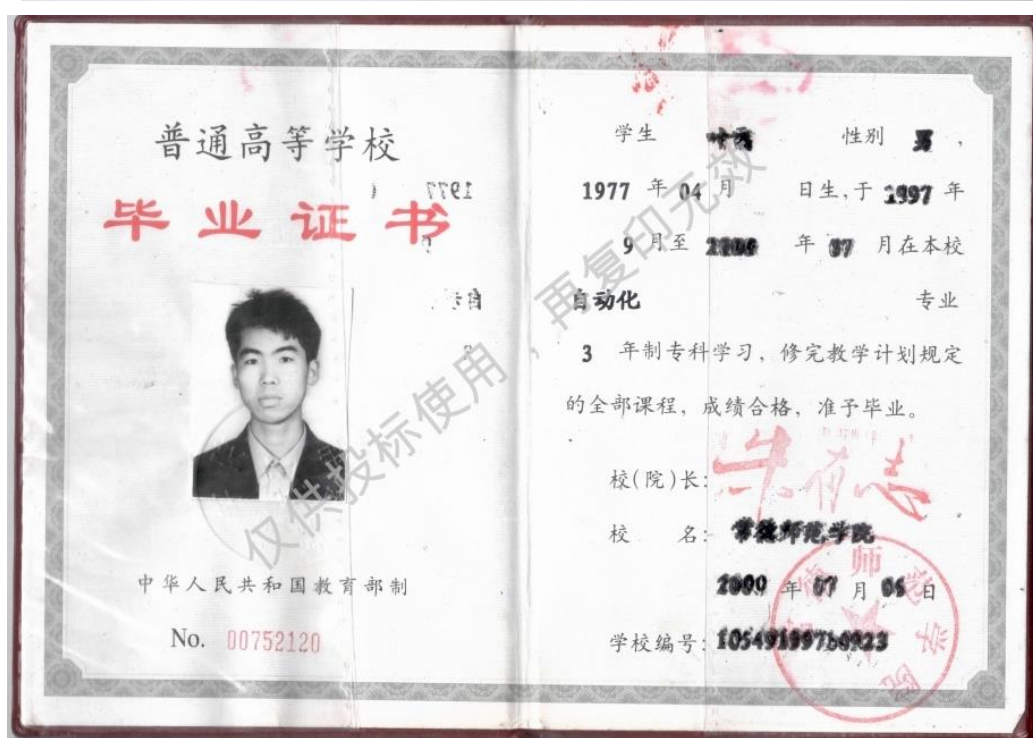 普通高等学校
毕业证书
中华人民共和国教育部制
No. 00752120
学生 性别 男，
1977 年 04 月 日生，于 1997 年
9 月至 2000 年 07 月在本校
自动化 专业
3 年制专科学习，修完教学计划规定
的全部课程，成绩合格，准予毕业。
校(院)长：朱有志
校 名：常德师范学院
2000 年 07 月 06 日
学校编号：
仅供投标使用，再复印无效